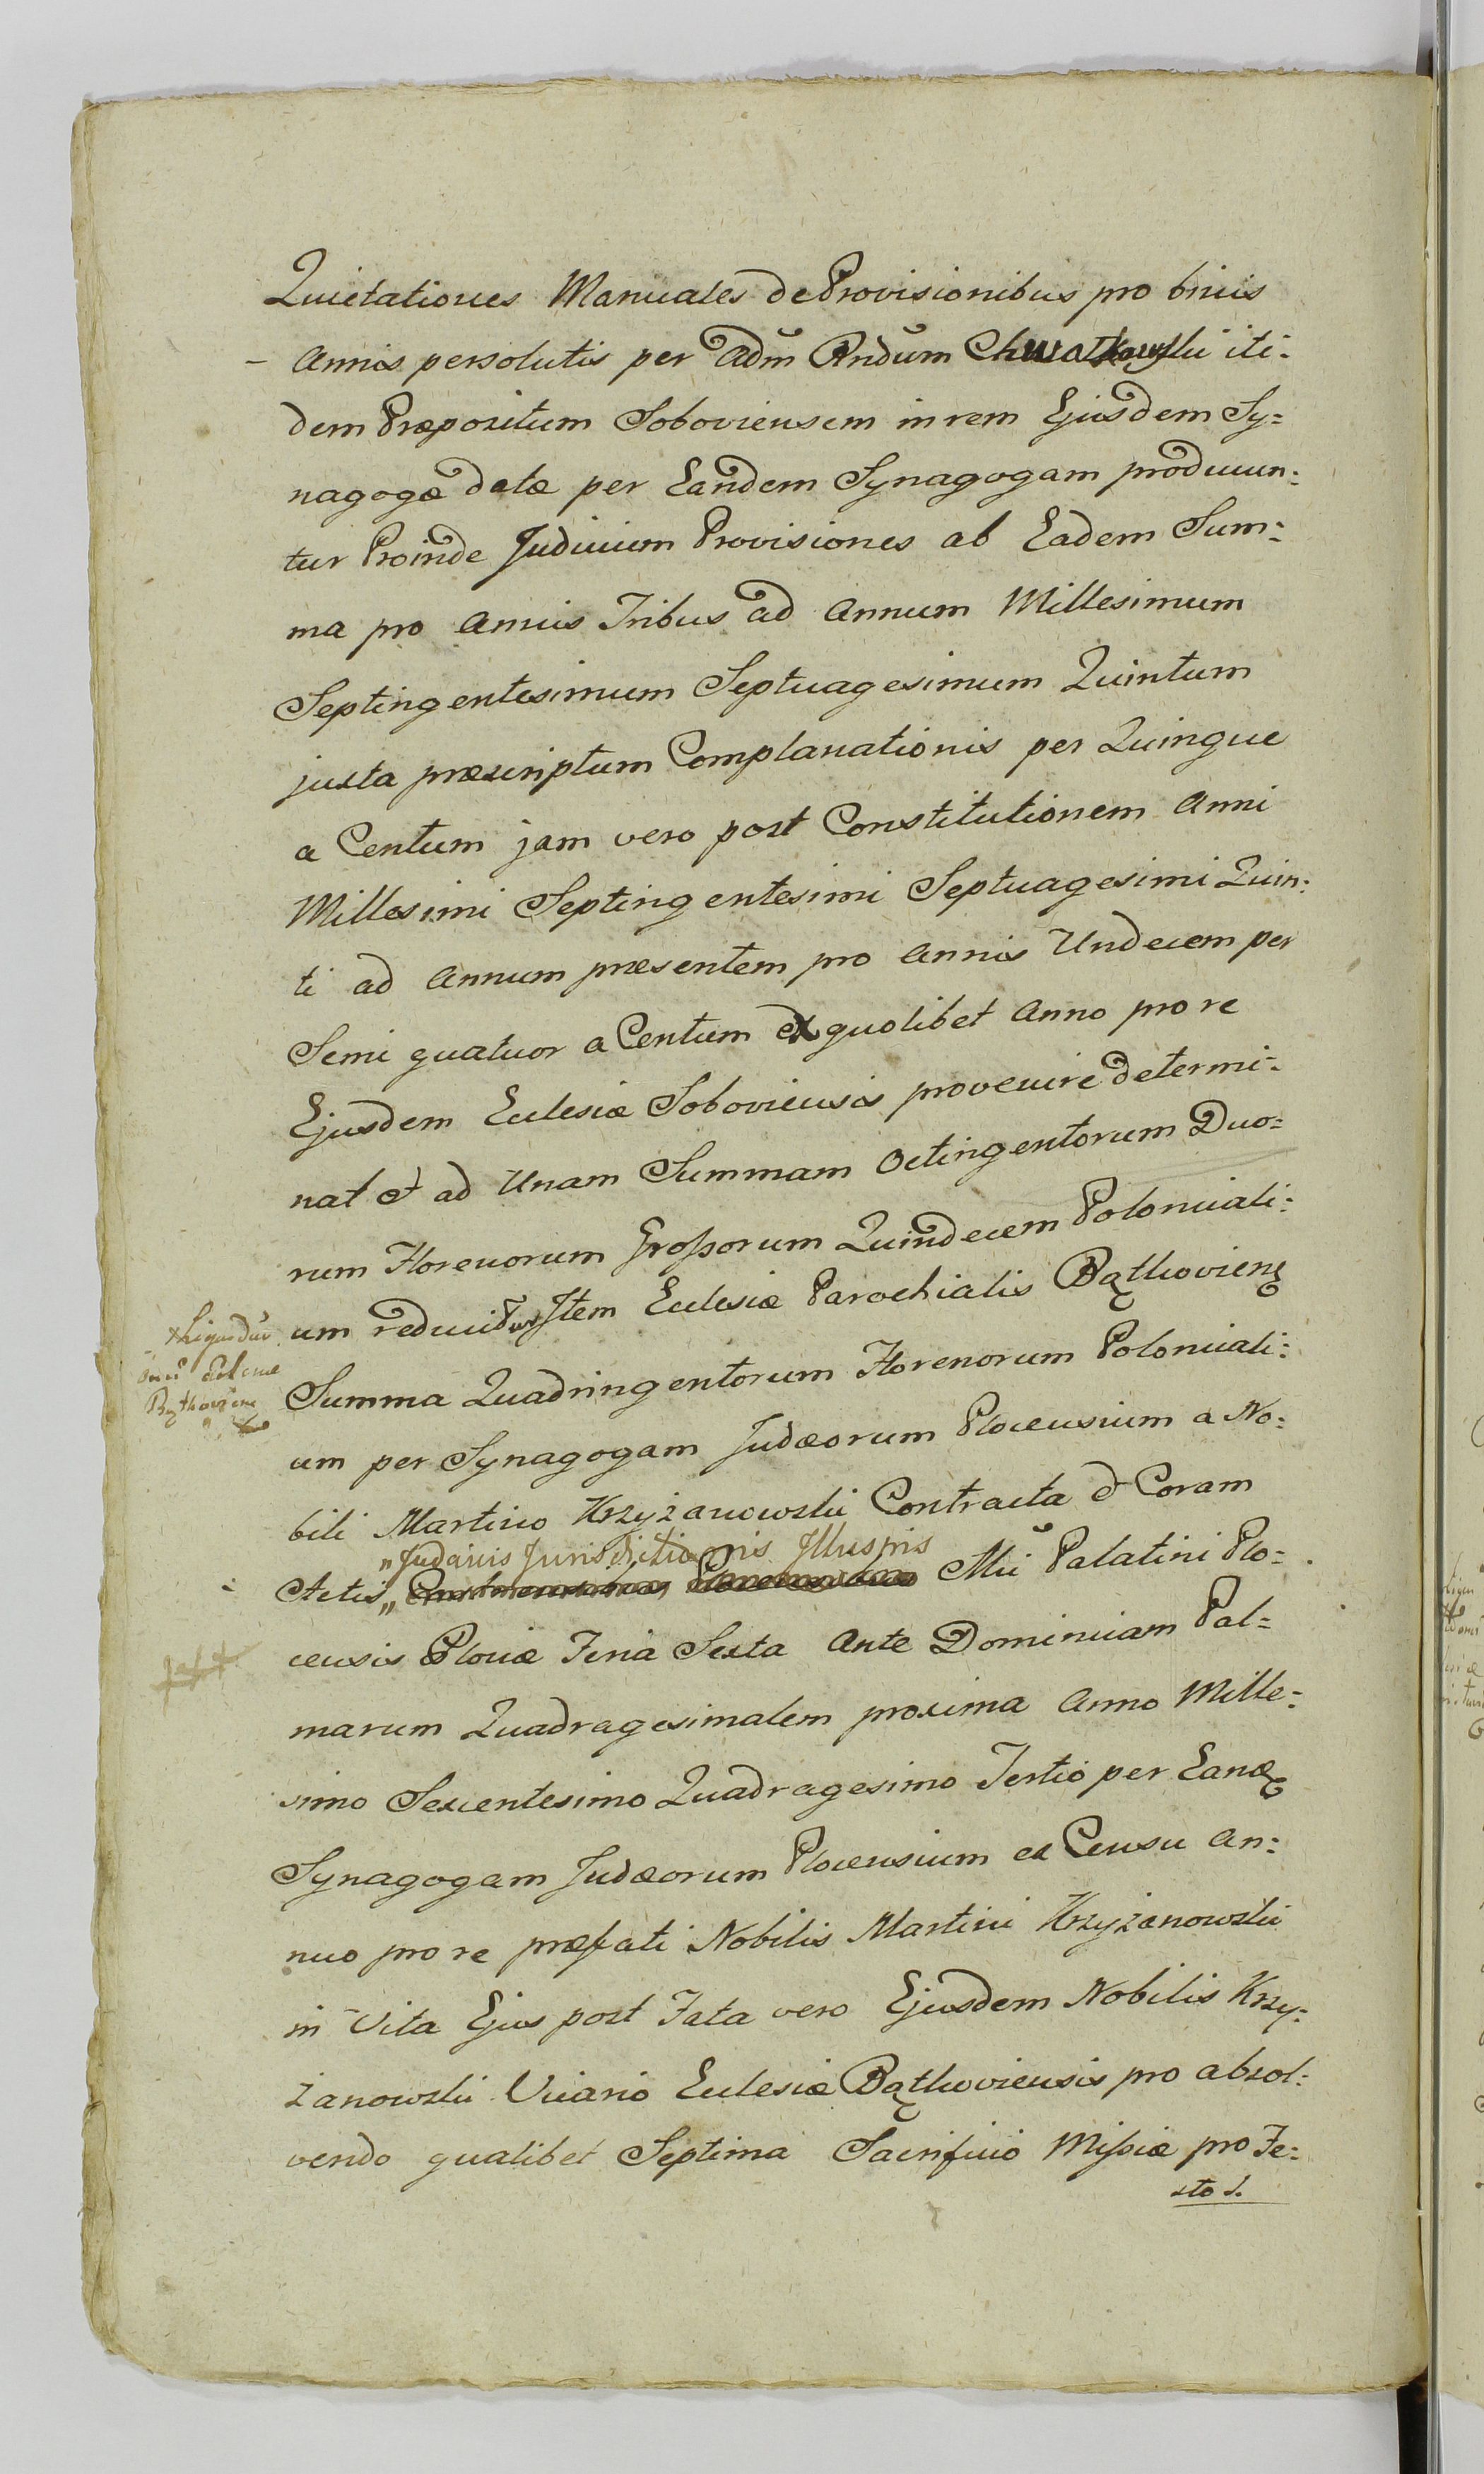 Quietationes Manuales de Provisionibus pro binis
annis persolutis per adm Rndum Chwatkowski iti=
dem Præpositum Soboviensem in rem Ejusdem Sy=
nagogæ datæ per Eandem Synagogam producun=
tur Proinde Judicium Provisiones ab Eadem Sum=
ma pro annis Tribus ad annum Millesimum
Septingentesimum Septuagesimum Quintum
juxta præscriptum Complanationis per Quinque
a Centum jam vero post Constitutionem anni
Millesimi Septingentesimi Septuagesimi Quin=
ti ad annum præsentem pro annis Undecem per
Semi quatuor a Centum ex quolibet anno pro re
Ejusdem Eclesiæ Soboviensis provenire determi=
nat et ad Unam Summam Octingentorum Duo=
rum Florenorum Grossorum Quindecem Polonicali=
um reducit Item Eclesiæ Parochialis Bątkovien
Summa Quadringentorum Florenorum Polonicali=
um per Synagogam Judæorum Plocensium a No=
bili Martino Krzyżanowski Contracta et Coram
"Judaicis Jurisdictionis Illuspris
Actis " Mci Palatini Plo=
censis Plociæ Feria Sexta ante Dominicam Pal=
marum Quadragesimalem proxima anno Mille=
simo Sexcentesimo Quadragesimo Tertio per Eand
Synagogam Judæorum Plocensium ex Censu an=
nuo pro re præfati Nobilis Martini Krzyżanowski
in Vita Ejus post Fata vero Ejusdem Nobilis Krzy=
żanowski Vicario Eclesiæ Bątkoviensis pro absol=
vendo qualibet Septima Sacrificio Missiæ pro Fe=
sto S.